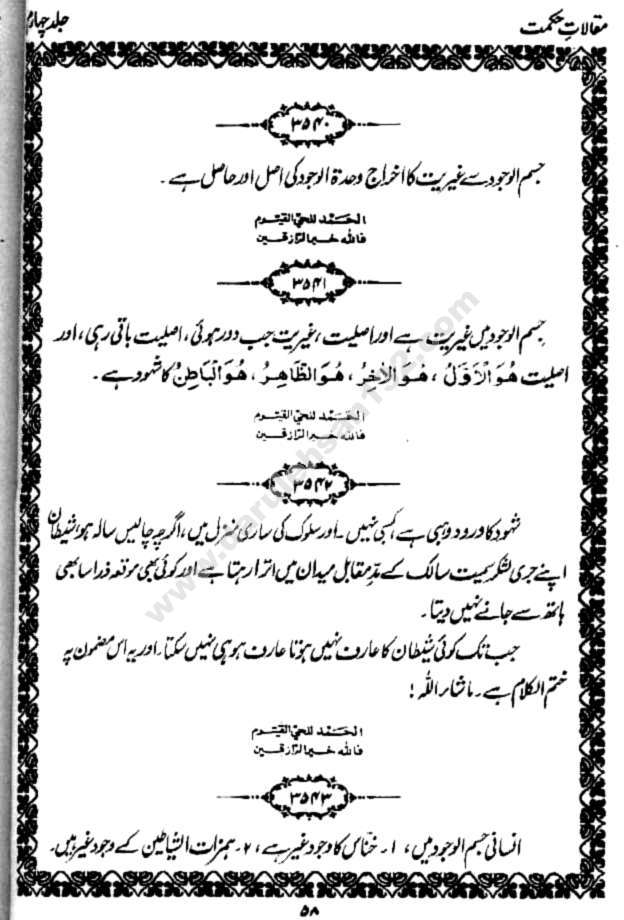 مقالاتِ حکمت
جلد چہارم
۳۵۴۰
جسم الوجود سے غیریت کا اخراج وحدۃ الوجود کی اصل اور حاصل ہے ۔
الحَمْد للحیّ القیّوم
فاللّٰه خیر الرّازقین
۳۵۴۱
جسم الوجود میں غیریت ہے اور اصلیت ، غیریت جب دور ہوئی ، اصلیت باقی رہی ، اور
اصلیت هُوَ الْاَوَّلُ ، هُوَ الْاٰخِرُ ، هُوَ الظَّاهِرُ ، هُوَ الْبَاطِنُ کا شہود ہے ۔
الحَمْد للحیّ القیّوم
فاللّٰه خیر الرّازقین
۳۵۴۲
شہود کا ورود وہبی ہے کسبی نہیں ۔ اور سلوک کی ساری منزل میں ، اگرچہ چالیس سالہ ہو ، شیطان
اپنے جری لشکر سمیت سالک کے مدِّ مقابل میدان میں اترا رہتا ہے اور کوئی بھی موقعہ ذرا سا بھی
ہاتھ سے جانے نہیں دیتا ۔
جب تک کوئی شیطان کا عارف نہیں ہوتا عارف ہو ہی نہیں سکتا ۔ اور یہ اس مضمون پہ
ختم الکلام ہے ۔ ماشاء اللہ !
الحَمْد للحیّ القیّوم
فاللّٰه خیر الرّازقین
۳۵۴۳
انسانی جسم الوجود میں ، ۱ ۔ خنّاس کا وجود غیر ہے ، ۲ ۔ ہمزات الشیاطین کے وجود غیر ہیں ۔
۵۸